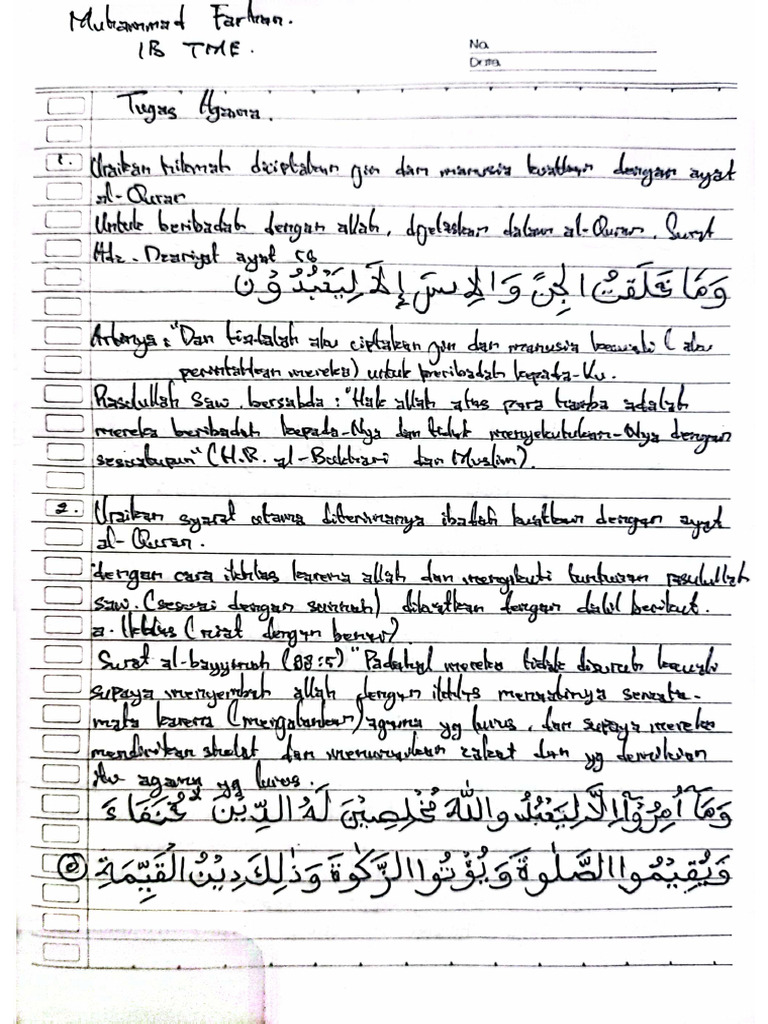 Muhammad Farhan.
1B TME.
No.
Date
Tugas Agama.
1. Uraikan hikmah diciptakan jin dan manusia kuatkan dengan ayat
al-Quran
Untuk beribadah dengan allah, dijelaskan dalam al-Quran. Surat
Adz-Dzariyat ayat 56
وَمَا خَلَقْتُ الْجِنَّ وَالْاِنْسَ إِلاَّ لِيَعْبُدُوْنِ
Artinya : "Dan tidaklah aku ciptakan jin dan manusia kecuali (aku
perintahkan mereka) untuk beribadah kepada-Ku.
Rasulullah Saw. bersabda : "Hak allah atas para hamba adalah
mereka beribadah kepada-Nya dan tidak menyekutukan-Nya dengan
sesuatupun" (H.R. al-Bukhari dan Muslim).
2. Uraikan syarat utama diterimanya ibadah kuatkan dengan ayat
al-Quran.
dengan cara ikhlas karena allah dan mengikuti tuntunan rasulullah
saw. (sesuai dengan sunnah) dikuatkan dengan dalil berikut.
a. Ikhlas (niat dengan benar)
Surat al-bayyinah (98:5) "Padahal mereka tidak disuruh kecuali
supaya menyembah allah dengan ikhlas mentaatinya semata-
mata karena (mengalankan) agama yg lurus, dan supaya mereka
mendirikan sholat dan menunaikan zakat dan yg demikian
itu agama yg lurus.
وَمَآ اُمِرُوْٓا اِلَّا لِيَعْبُدُواللّٰهَ مُخْلِصِيْنَ لَهُ الدِّيْنَ حُنَفَاءَ
وَيُقِيْمُوا الصَّلٰوةَ وَيُؤْتُوا الزَّكٰوةَ وَذٰلِكَ دِيْنُ الْقَيِّمَةِ ۝٥